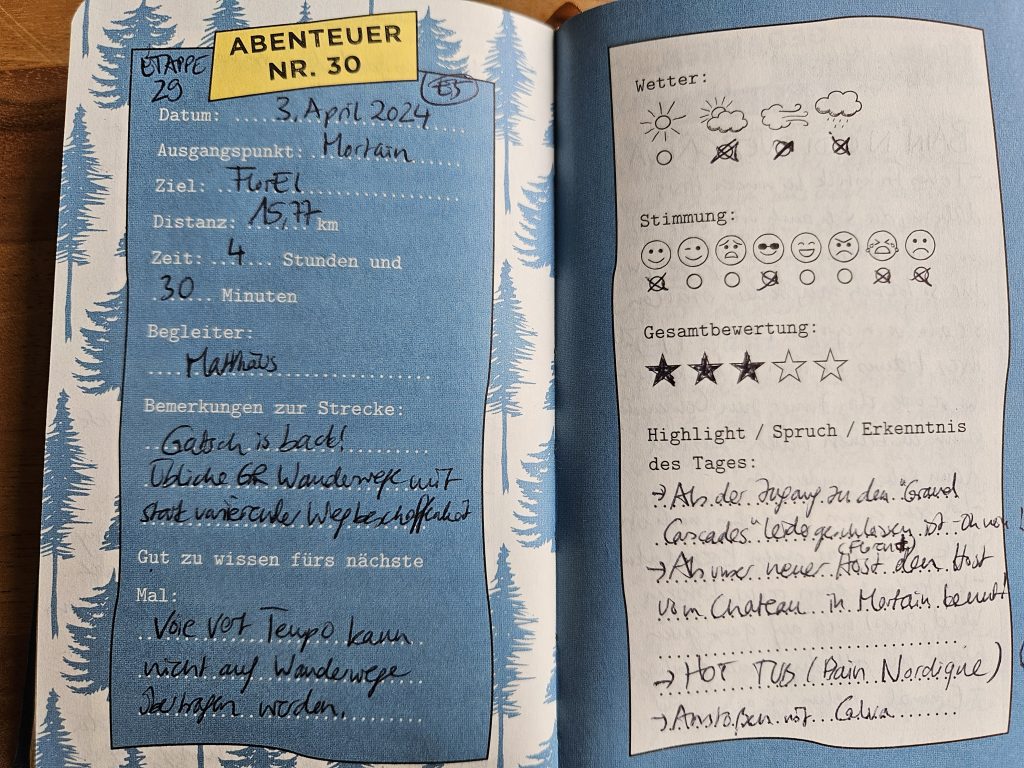 ETAPPE
29
ABENTEUER
NR. 30
E5
Datum: 3. April 2024
Ausgangspunkt: Mortain
Ziel: FlorEl
Distanz: 15,77 km
Zeit: 4 Stunden und
30 Minuten
Begleiter:
Matthäus
Bemerkungen zur Strecke:
Gatsch is back!
Übliche GR Wanderwege mit
stark variierender Wegbeschaffenheit
Gut zu wissen fürs nächste
Mal:
Voie vert Tempo kann
nicht auf Wanderwege
übertragen werden.
Wetter:
Stimmung:
Gesamtbewertung:
Highlight / Spruch / Erkenntnis
des Tages:
→ Als der Zugang zu den "Grand
Cascades" leider geschlossen ist - oh nein
→ Als unser neuer Host den Host
vom Chateau in Mortain kennt!
→ HOT TUB (Bain Nordique)
→ Anstoßen mit